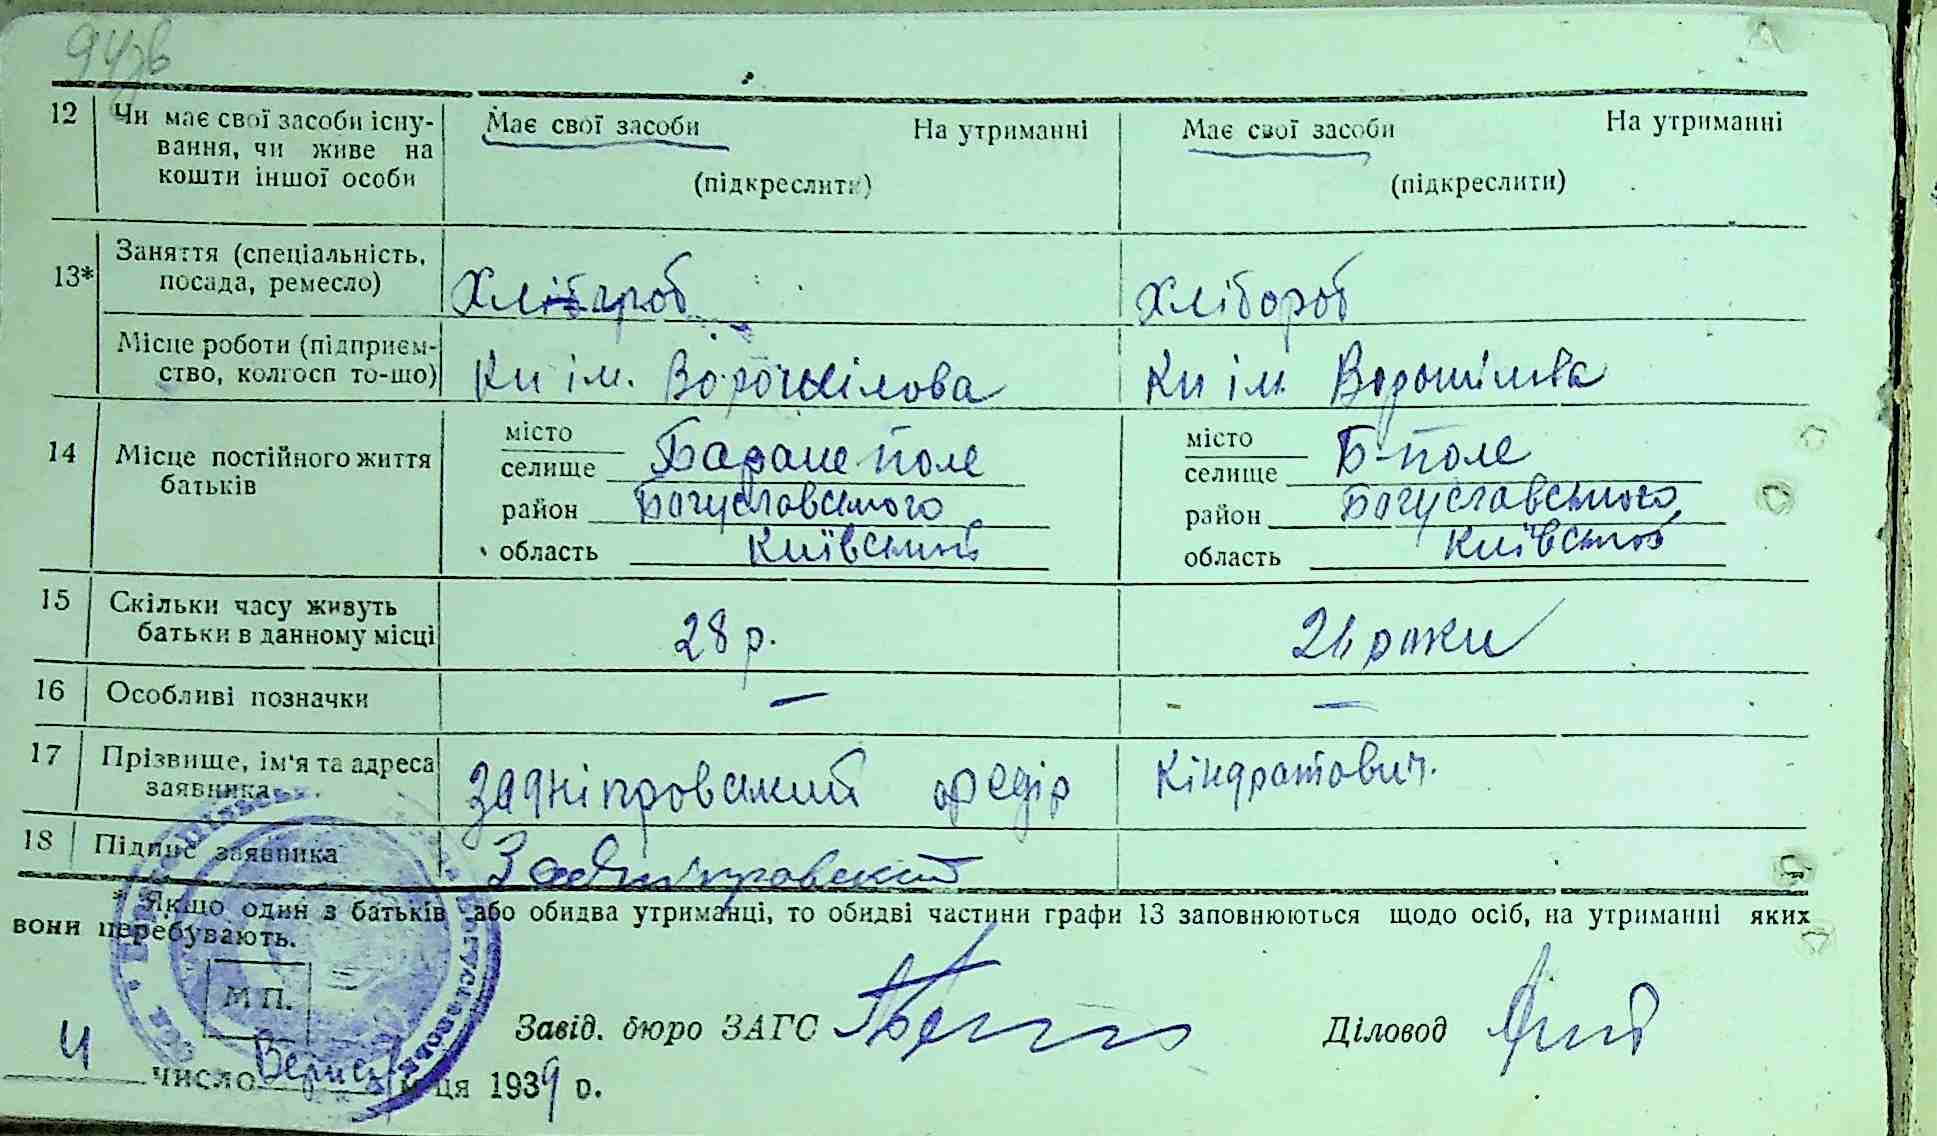 12 Чи має свої засоби існу-
вання, чи живе на
кошти іншої особи
Має свої засоби На утриманні
(підкреслити)
Має свої засоби На утриманні
(підкреслити)
13*
Заняття (спеціальність,
посада, ремесло)
Хлібороб
Хлібороб
Місце роботи (підприєм-
ство, колгосп то-що)
Кп ім. Ворошілова
Кп ім Ворошілова
14 Місце постійного життя
батьків
місто
селище Баране поле
район Богуславського
область Київської
місто
селище Б-поле
район Богуславського
область Київської
15 Скільки часу живуть
батьки в данному місці
28 р.
роки
16 Особливі позначки
—
—
17 Прізвище, ім'я та адреса
заявника
Задніпровський Федір
Кіндратович.
18 Підпис заявника
Задніпровский
* Якщо один з батьків або обидва утриманці, то обидві частини графи 13 заповнюються щодо осіб, на утриманні яких
вони перебувають.
М П.
Завід. бюро ЗАГС
Діловод
число м ця 1939 р.